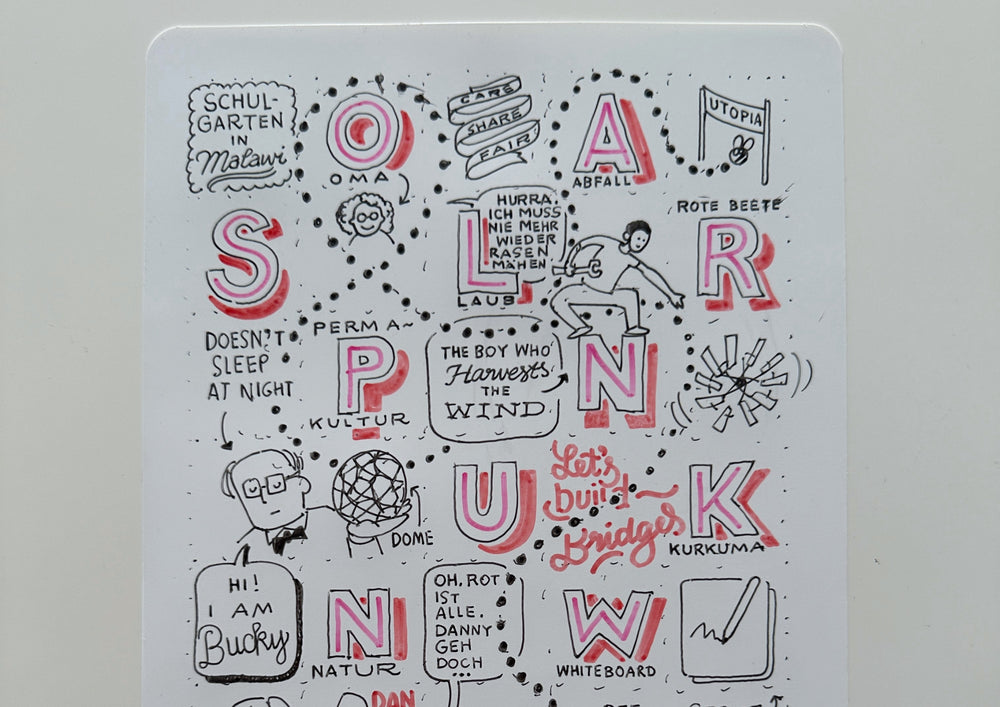 SCHUL-
GARTEN
IN
Malawi
O
OMA
CARE
SHARE
FAIR
A
ABFALL
UTOPIA
S
HURRA,
ICH MUSS
NIE MEHR
WIEDER
RASEN
MÄHEN
L
LAUB
ROTE BEETE
R
DOESN'T
SLEEP
AT NIGHT
PERMA-
P
KULTUR
THE BOY WHO
Harvests
THE
WIND
N
DOME
U
Let's
build
Bridges
K
KURKUMA
HI!
I AM
Bucky
N
NATUR
OH, ROT
IST
ALLE.
DANNY
GEH
DOCH
...
W
WHITEBOARD
DAN